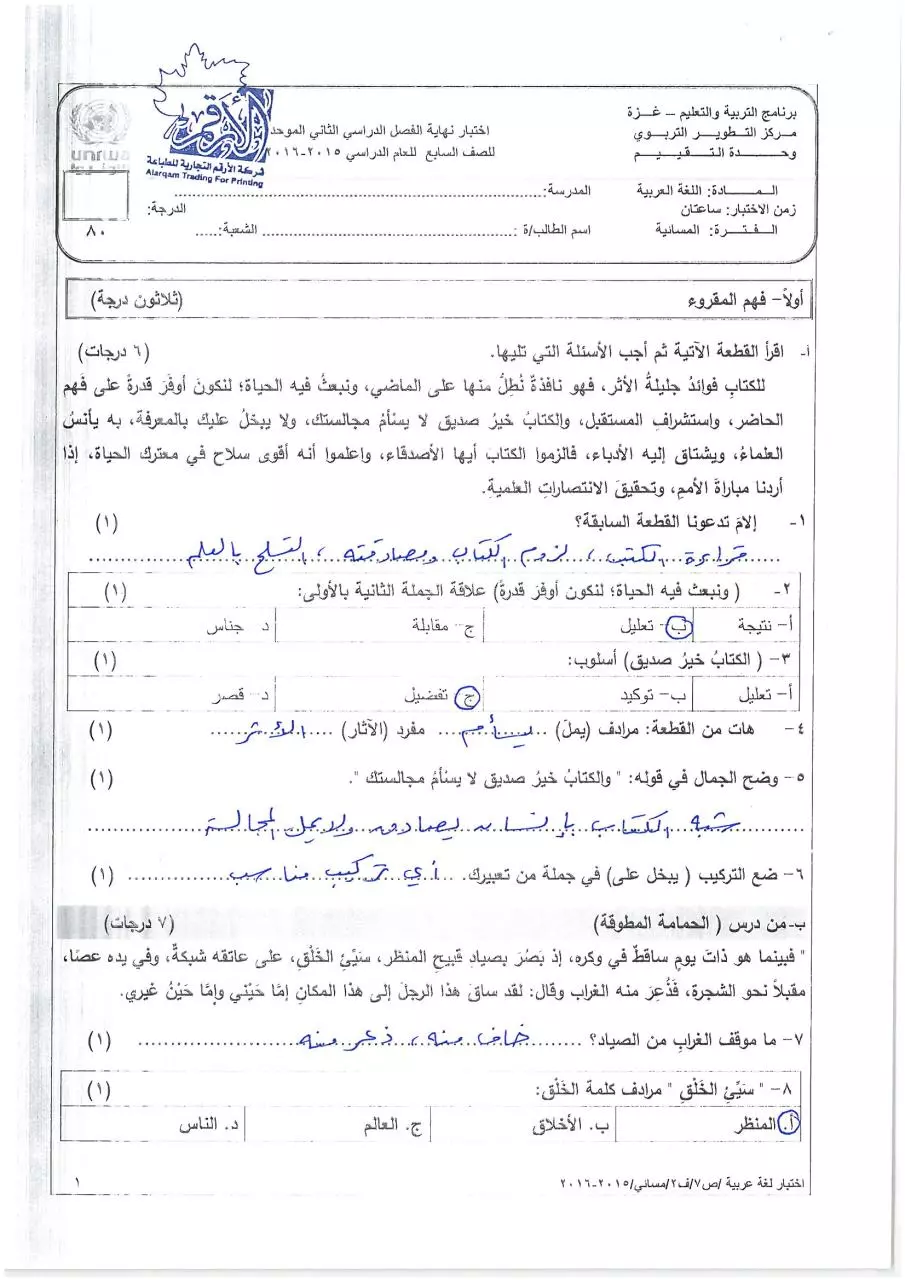 برنامج التربية والتعليم – غـزة
مركز التطوير التربوي
وحـدة التقييم
اختبار نهاية الفصل الدراسي الثاني الموحد
للصف السابع للعام الدراسي ٢٠١٥-٢٠١٦
الأرقم
شركة الأرقم التجارية للطباعة
Alarqam Trading For Printing
unrwa
المـــادة: اللغة العربية
المدرسة:......................
زمن الاختبار: ساعتان
الدرجة:
الفـتـرة: المسائية
اسم الطالب/ة :...................... الشعبة:.....
٨٠
أولاً- فهم المقروء (ثلاثون درجة)
أ- اقرأ القطعة الآتية ثم أجب الأسئلة التي تليها. (٦ درجات)
للكتابِ فوائدُ جليلةُ الأثر، فهو نافذةٌ نُطِلُّ منها على الماضي، ونبعثُ فيه الحياة؛ لنكونَ أوفَرَ قدرةً على فَهم
الحاضر، واستشرافِ المستقبل، والكتابُ خيرُ صديق لا يسأمُ مجالستك، ولا يبخلُ عليك بالمعرفة، به يأنسُ
العلماءُ، ويشتاق إليه الأدباء، فالزموا الكتاب أيها الأصدقاء، واعلموا أنه أقوى سلاح في معترك الحياة، إذا
أردنا مباراةَ الأممِ، وتحقيقَ الانتصاراتِ العلمية.
١- إلامَ تدعونا القطعة السابقة؟ (١)
قراءة الكتب، لزوم الكتاب ومصادقته، التسلح بالعلم
٢- ( ونبعث فيه الحياة؛ لنكون أوفرَ قدرةً) علاقة الجملة الثانية بالأولى: (١)
أ- نتيجة ب- تعليل ج- مقابلة د- جناس
٣- ( الكتابُ خيرُ صديق) أسلوب: (١)
أ- تعليل ب- توكيد ج- تفضيل د- قصر
٤- هات من القطعة: مرادف (يملّ) ..يسأم... مفرد (الآثار) ....الأثر...... (١)
٥- وضح الجمال في قوله: " والكتابُ خيرُ صديق لا يسْأمُ مجالستك ". (١)
شبه الكتاب بإنسان يصادق ولا يمل المجالسة
٦- ضع التركيب ( يبخل على) في جملة من تعبيرك. ..أي تركيب مناسب............ (١)
ب- من درس ( الحمامة المطوقة) (٧ درجات)
" فبينما هو ذاتَ يومٍ ساقطٌ في وكره، إذ بَصُرَ بصيادٍ قبيحِ المنظر، سَيِّئِ الخَلْقِ، على عاتقه شبكةٌ، وفي يده عصًا،
مقبلاً نحو الشجرة، فَذُعِرَ منه الغراب وقال: لقد ساقَ هذا الرجلَ إلى هذا المكانِ إمَّا حَيْني وإمَّا حَيْنُ غيري.
٧- ما موقف الغرابِ من الصياد؟ .........خاف منه، ذعر منه................... (١)
٨- " سَيِّئِ الخَلْقِ " مرادف كلمة الخَلْق: (١)
أ. المنظر ب. الأخلاق ج. العالم د. الناس
اختبار لغة عربية /ص٧/ف٢/مسائي/٢٠١٥-٢٠١٦ ١